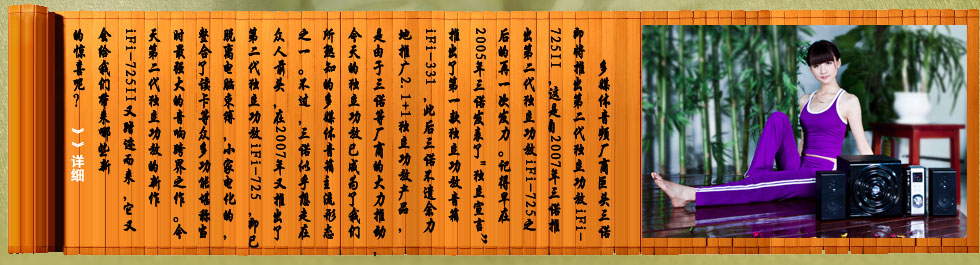 多媒体音频厂商巨头三诺
即将推出第二代独立功放iFi-
725II ，这是自2007年三诺推
出第二代独立功放iFi-725之
后的再一次发力。记得早在
2005年三诺发表了“独立宣言”，
推出了第一款独立功放音箱
iFi-331 ，此后三诺不遗余力
地推广2.1+1独立功放产品，
是由于三诺等厂商的大力推动
今天的独立功放已成为了我们
所能知的多媒体音箱主流形态
之一。不过，三诺似乎想走在
众人前头，在2007年又推出了
第二代独立功放iFi-725 ，即已
脱离电脑束缚，小家电化的，
整合了读卡等众多功能堪称当
时最强大的音响跨界之作。今
天第二代独立功放的新作
iFi-725II又踏速而来，它又
会给我们带来哪些新
的惊喜呢？
》》详细